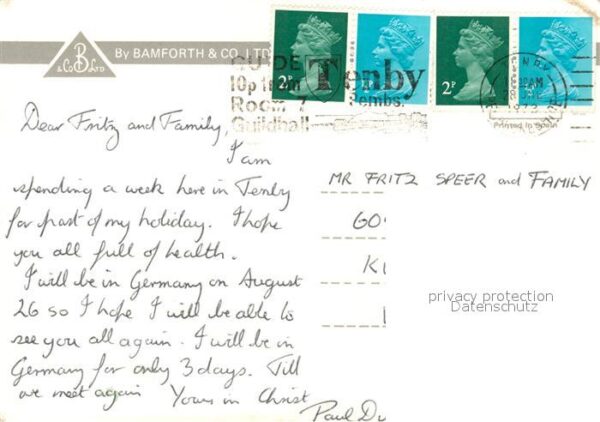 B
& Co LTD
By BAMFORTH & CO. LTD
2P
2P
GUIDE
10p from
Room 7
Guildhall
Tenby
Pembs.
TENBY
Printed in Spain
Dear Fritz and Family,
I am
spending a week here in Tenby
for part of my holiday. I hope
you all full of health.
I will be in Germany on August
26 so I hope I will be able to
see you all again. I will be in
Germany for only 3 days. Till
we meet again Yours in Christ
Paul Du
MR FRITZ SPEER and FAMILY
privacy protection
Datenschutz